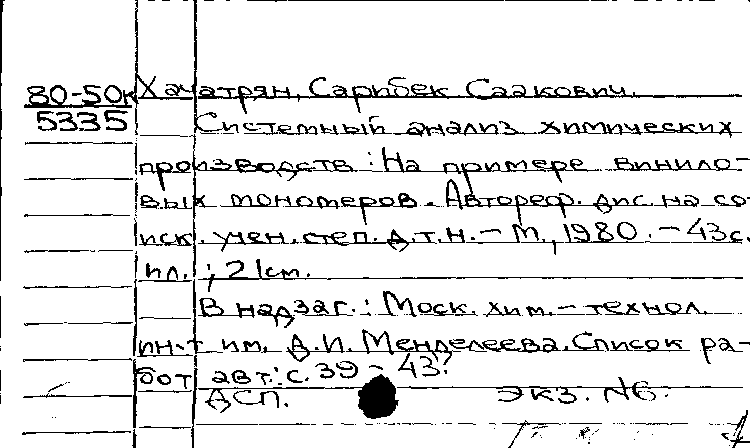 80-50к Хачатрян, Сарибек Саакович.
5335 Системный анализ химических
производств: На примере винило-
вых мономеров. Автореф. дис. на со-
иск. учен. степ. д.т.н. - М., 1980. - 43с.
ил.; 21см.
В надзаг.: Моск. хим.-технол.
ин-т им. Д.И. Менделеева. Список ра-
бот авт.: с. 39-43.
ДСП. экз. №6.